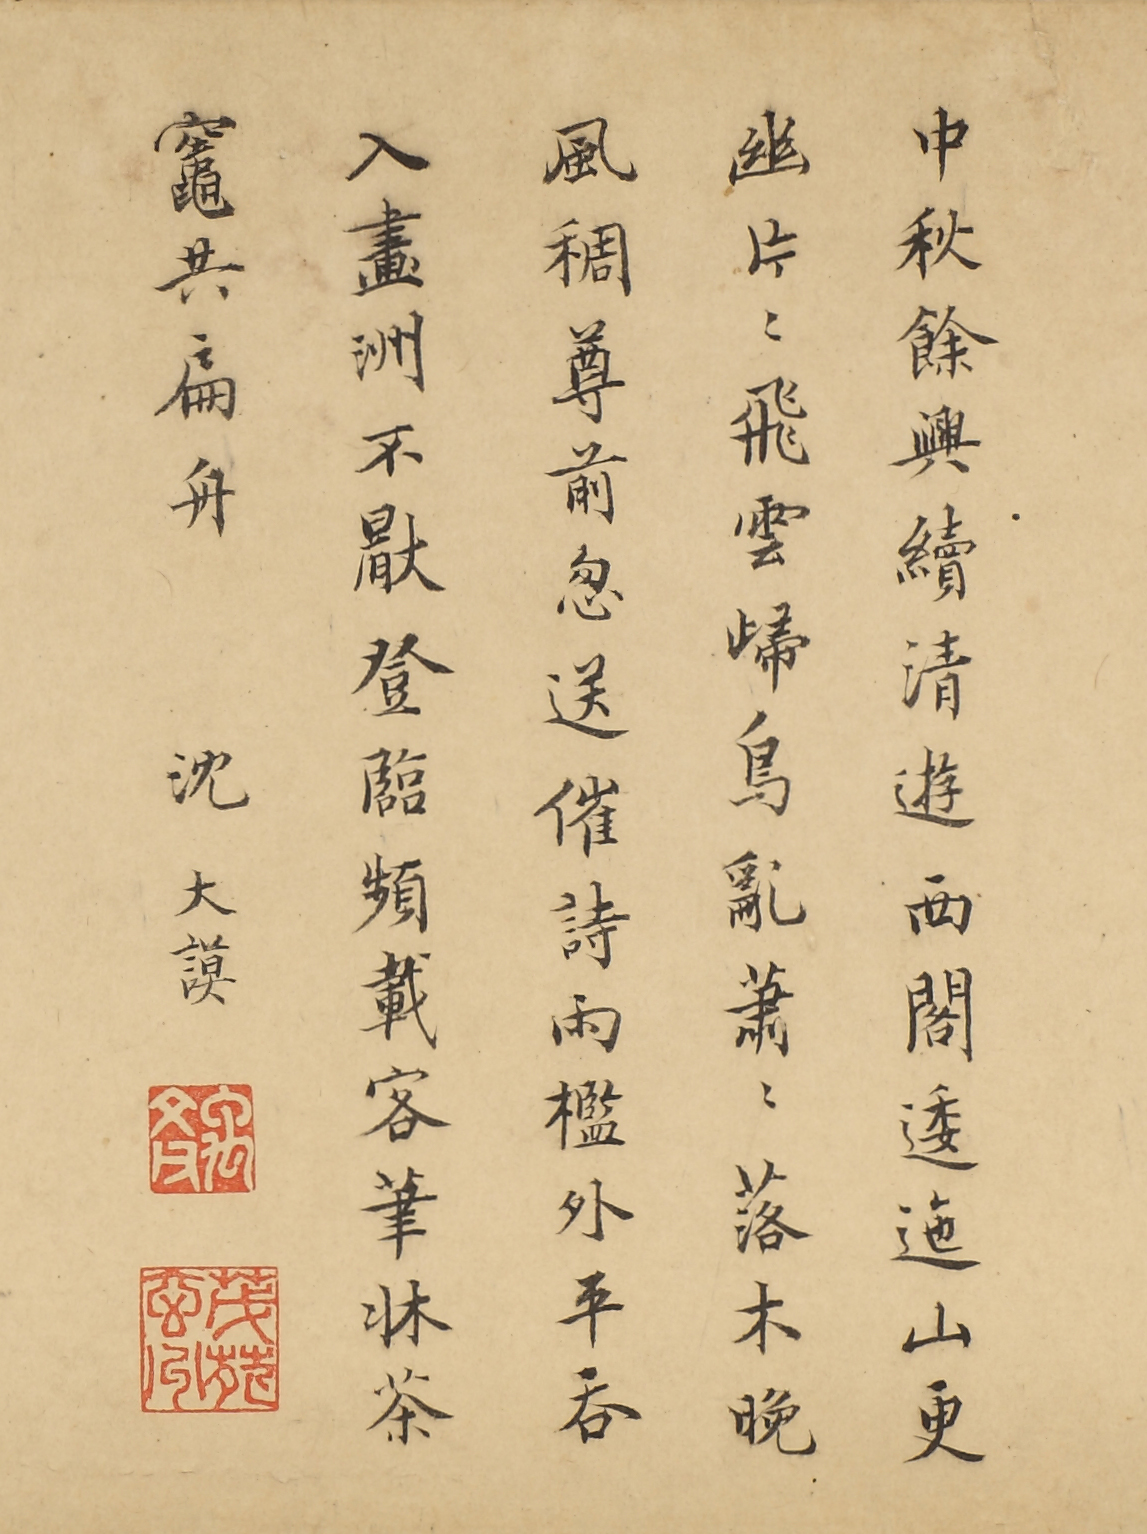 中秋餘興續清遊西閣逶迤山更
幽片〻飛雲㱕鳥亂蕭〻落木晚
風稠尊前忽送催詩雨檻外平吞
入畫洲不猒登臨頻載客筆牀茶
竈共扁舟 沈大謨